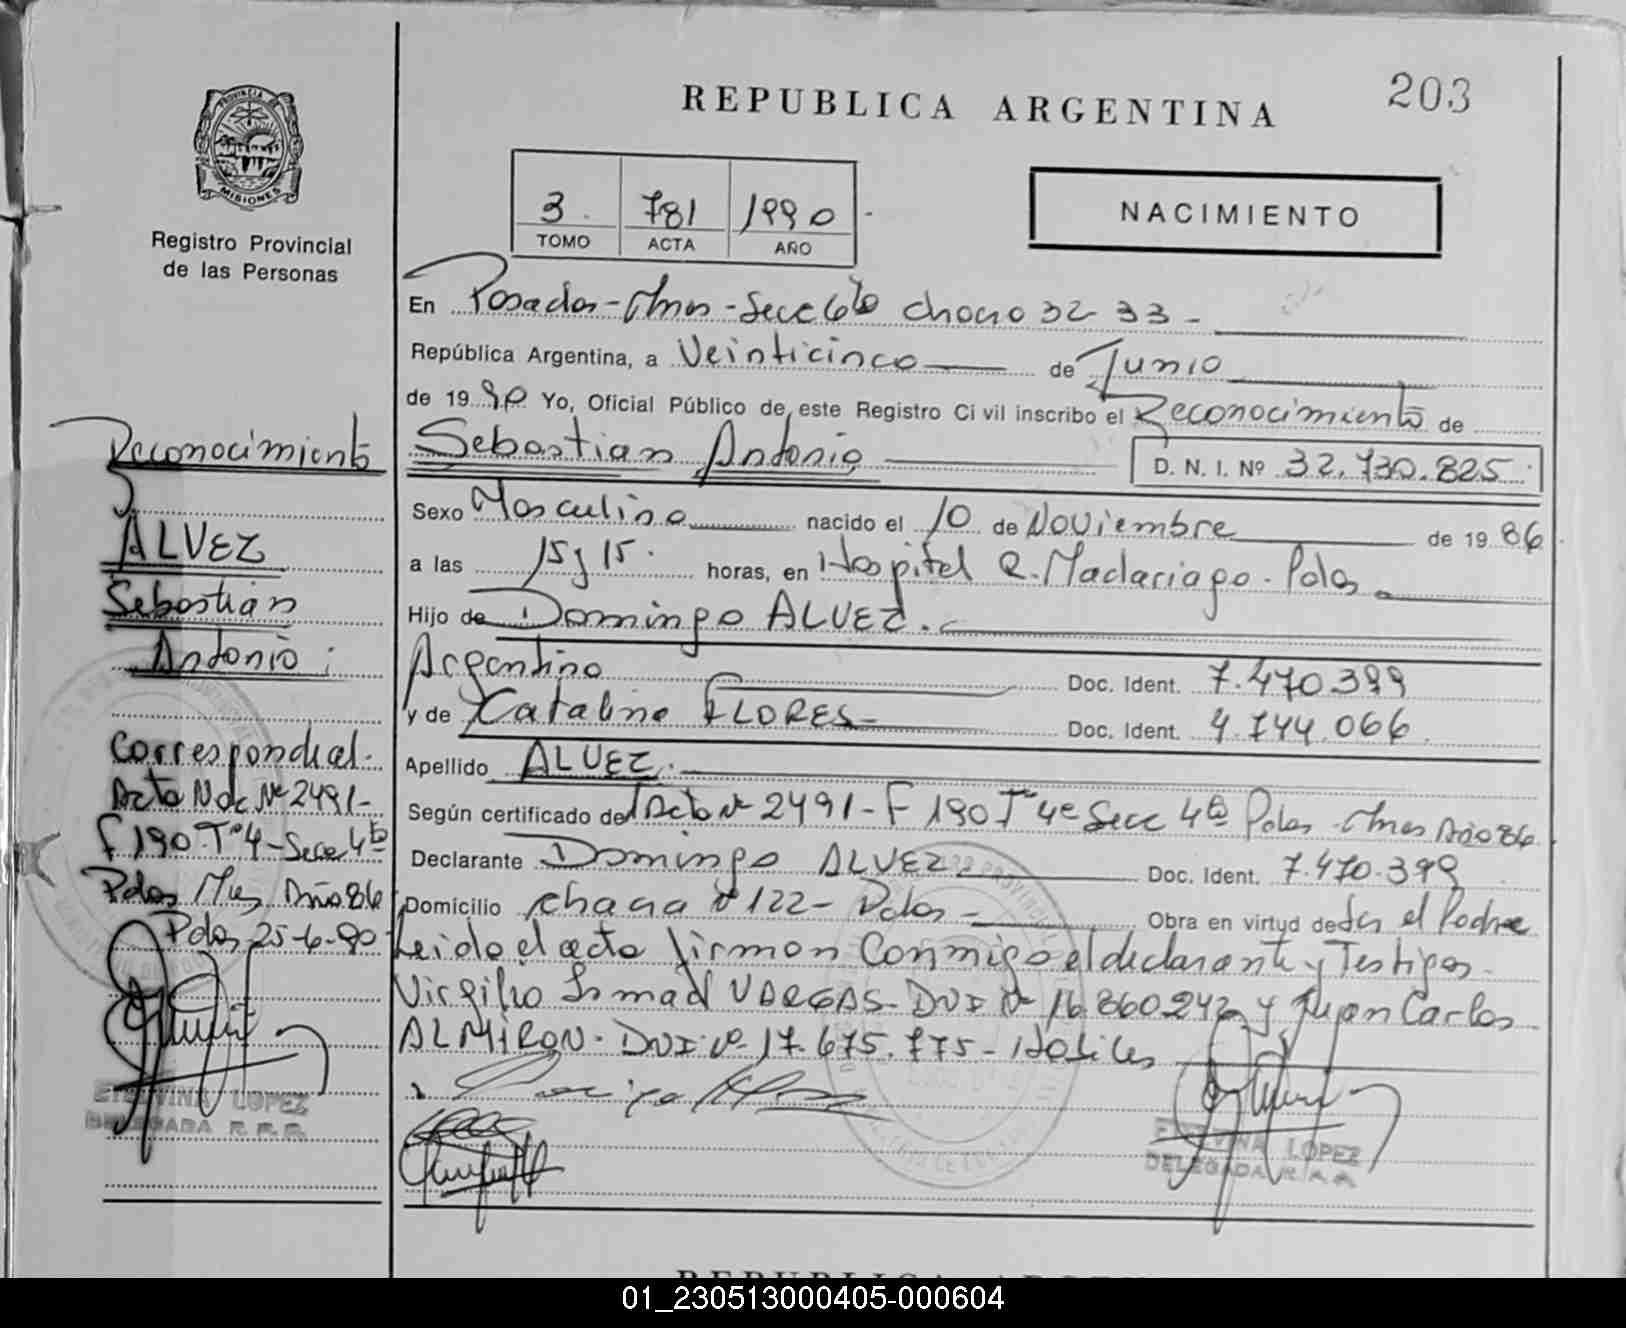 203
REPUBLICA ARGENTINA
PROVINCIA DE
MISIONES
Registro Provincial
de las Personas
3. 781 1990
TOMO ACTA AÑO
NACIMIENTO
En Posadas-Mnes-Secc 6ta chacra 32-33-
República Argentina, a Veinticinco de Junio
de 1990 Yo, Oficial Público de este Registro Civil inscribo el Reconocimiento de
Sebastian Antonio D. N. I. Nº 32.730.825
Sexo Masculino nacido el 10 de Noviembre de 1986
a las 15 y 15. horas, en Hospital R. Madariaga. Pdas
Hijo de Domingo ALVEZ.
Argentino Doc. Ident. 7.470.399
y de Catalina FLORES Doc. Ident. 4.744.066
Apellido ALVEZ.
Según certificado del Acta Nº 2491-F 190 Tº 4º Secc 4ta Pdas-Mnes Año 86
Declarante Domingo ALVEZ Doc. Ident. 7.470.399
Domicilio chacra Nº 122- Pdas- Obra en virtud de Ser el Padre
Leido el acta firman Conmigo el declarante y Testigos
Virgilio Ismael VARGAS-DNI Nº 16.860.242 y Juan Carlos
ALMIRON-DNI Nº 17.675.775-Hábiles
ETELVINA LOPEZ
DELEGADA R.P.P.
Reconocimiento
ALVEZ
Sebastian
Antonio
Correspond al
Acta Nac Nº 2491-
F 190-Tº 4-Secc 4ta
Pdas Mnes Año 86
Pdas 25-6-90
ETELVINA LOPEZ
DELEGADA R.P.P.
01_230513000405-000604